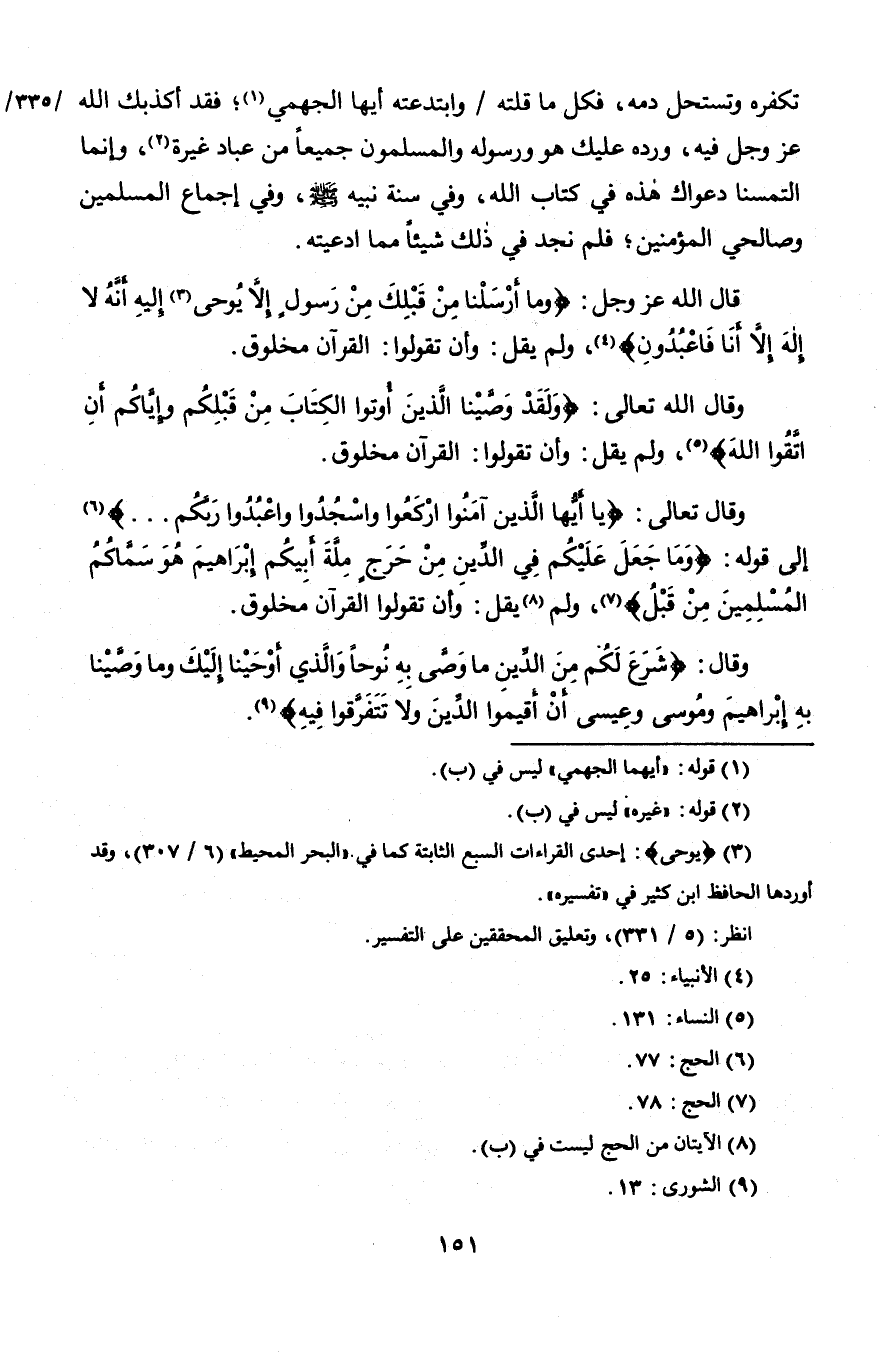 تكفره وتستحل دمه، فكل ما قلته / وابتدعته أيها الجهمي(١)؛ فقد أكذبك الله /٣٣٥/
عز وجل فيه، ورده عليك هو ورسوله والمسلمون جميعاً من عباد غيرة(٢)، وإنما
التمسنا دعواك هٰذه في كتاب الله، وفي سنة نبيه ﷺ، وفي إجماع المسلمين
وصالحي المؤمنين؛ فلم نجد في ذٰلك شيئاً مما ادعيته.
قال الله عز وجل: ﴿وما أَرْسَلْنا مِنْ قَبْلِكَ مِنْ رَسولٍ إِلَّا يُوحى(٣) إليهِ أَنَّهُ لا
إِلٰهَ إِلَّا أَنَا فَاعْبُدُونِ﴾(٤)، ولم يقل: وأن تقولوا: القرآن مخلوق.
وقال الله تعالى: ﴿وَلَقَدْ وَصَّيْنا الَّذينَ أُوتوا الكِتَابَ مِنْ قَبْلِكُم وإِيَّاكُم أَنِ
اتَّقُوا اللهَ﴾(٥)، ولم يقل: وأن تقولوا: القرآن مخلوق.
وقال تعالى: ﴿يا أَيُّها الَّذين آمَنُوا ارْكَعُوا واسْجُدُوا واعْبُدُوا رَبَّكُم . . .﴾(٦)
إلى قوله: ﴿وَمَا جَعَلَ عَلَيْكُم فِي الدِّينِ مِنْ حَرَجٍ مِلَّةَ أَبيكُم إِبْرَاهيمَ هُوَ سَمَّاكُمُ
المُسْلِمِينَ مِنْ قَبْلُ﴾(٧)، ولم (٨)يقل: وأن تقولوا القرآن مخلوق.
وقال: ﴿شَرَعَ لَكُم مِنَ الدِّينِ ما وَصَّى بِهِ نُوحاً وَالَّذي أَوْحَيْنا إِلَيْكَ وما وَصَّيْنا
بهِ إِبْراهيمَ ومُوسى وعِيسى أَنْ أَقيموا الدِّينَ ولا تَتَفَرَّقوا فِيهِ﴾(٩).
(١) قوله: «أيهما الجهمي» ليس في (ب).
(٢) قوله: «غيره» ليس في (ب).
(٣) ﴿يوحى﴾: إحدى القراءات السبع الثابتة كما في «البحر المحيط» (٦ / ٣٠٧)، وقد
أوردها الحافظ ابن كثير في «تفسيره».
انظر: (٥ / ٣٣١)، وتعليق المحققين على التفسير.
(٤) الأنبياء: ٢٥.
(٥) النساء: ١٣١.
(٦) الحج: ٧٧.
(٧) الحج: ٧٨.
(٨) الآيتان من الحج ليست في (ب).
(٩) الشورى: ١٣.
١٥١